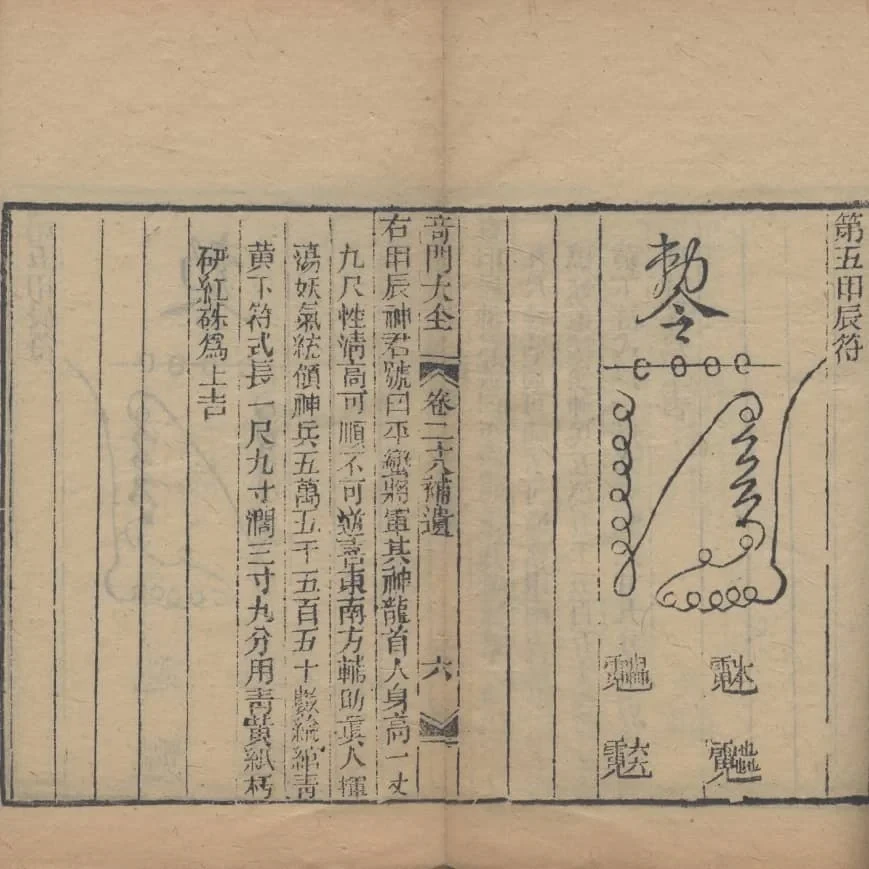 第五甲辰符
勅令
奇門大全 卷二十八補遺 六
右甲辰神君號曰平蠻將軍其神龍首人身高一丈
九尺性清高可順不可逆喜東南方輔助眞人揮
蕩妖氣統領神兵五萬五千五百五十數統綰青
黃下符式長一尺九寸濶三寸九分用青黃紙朽
研紅硃爲上吉